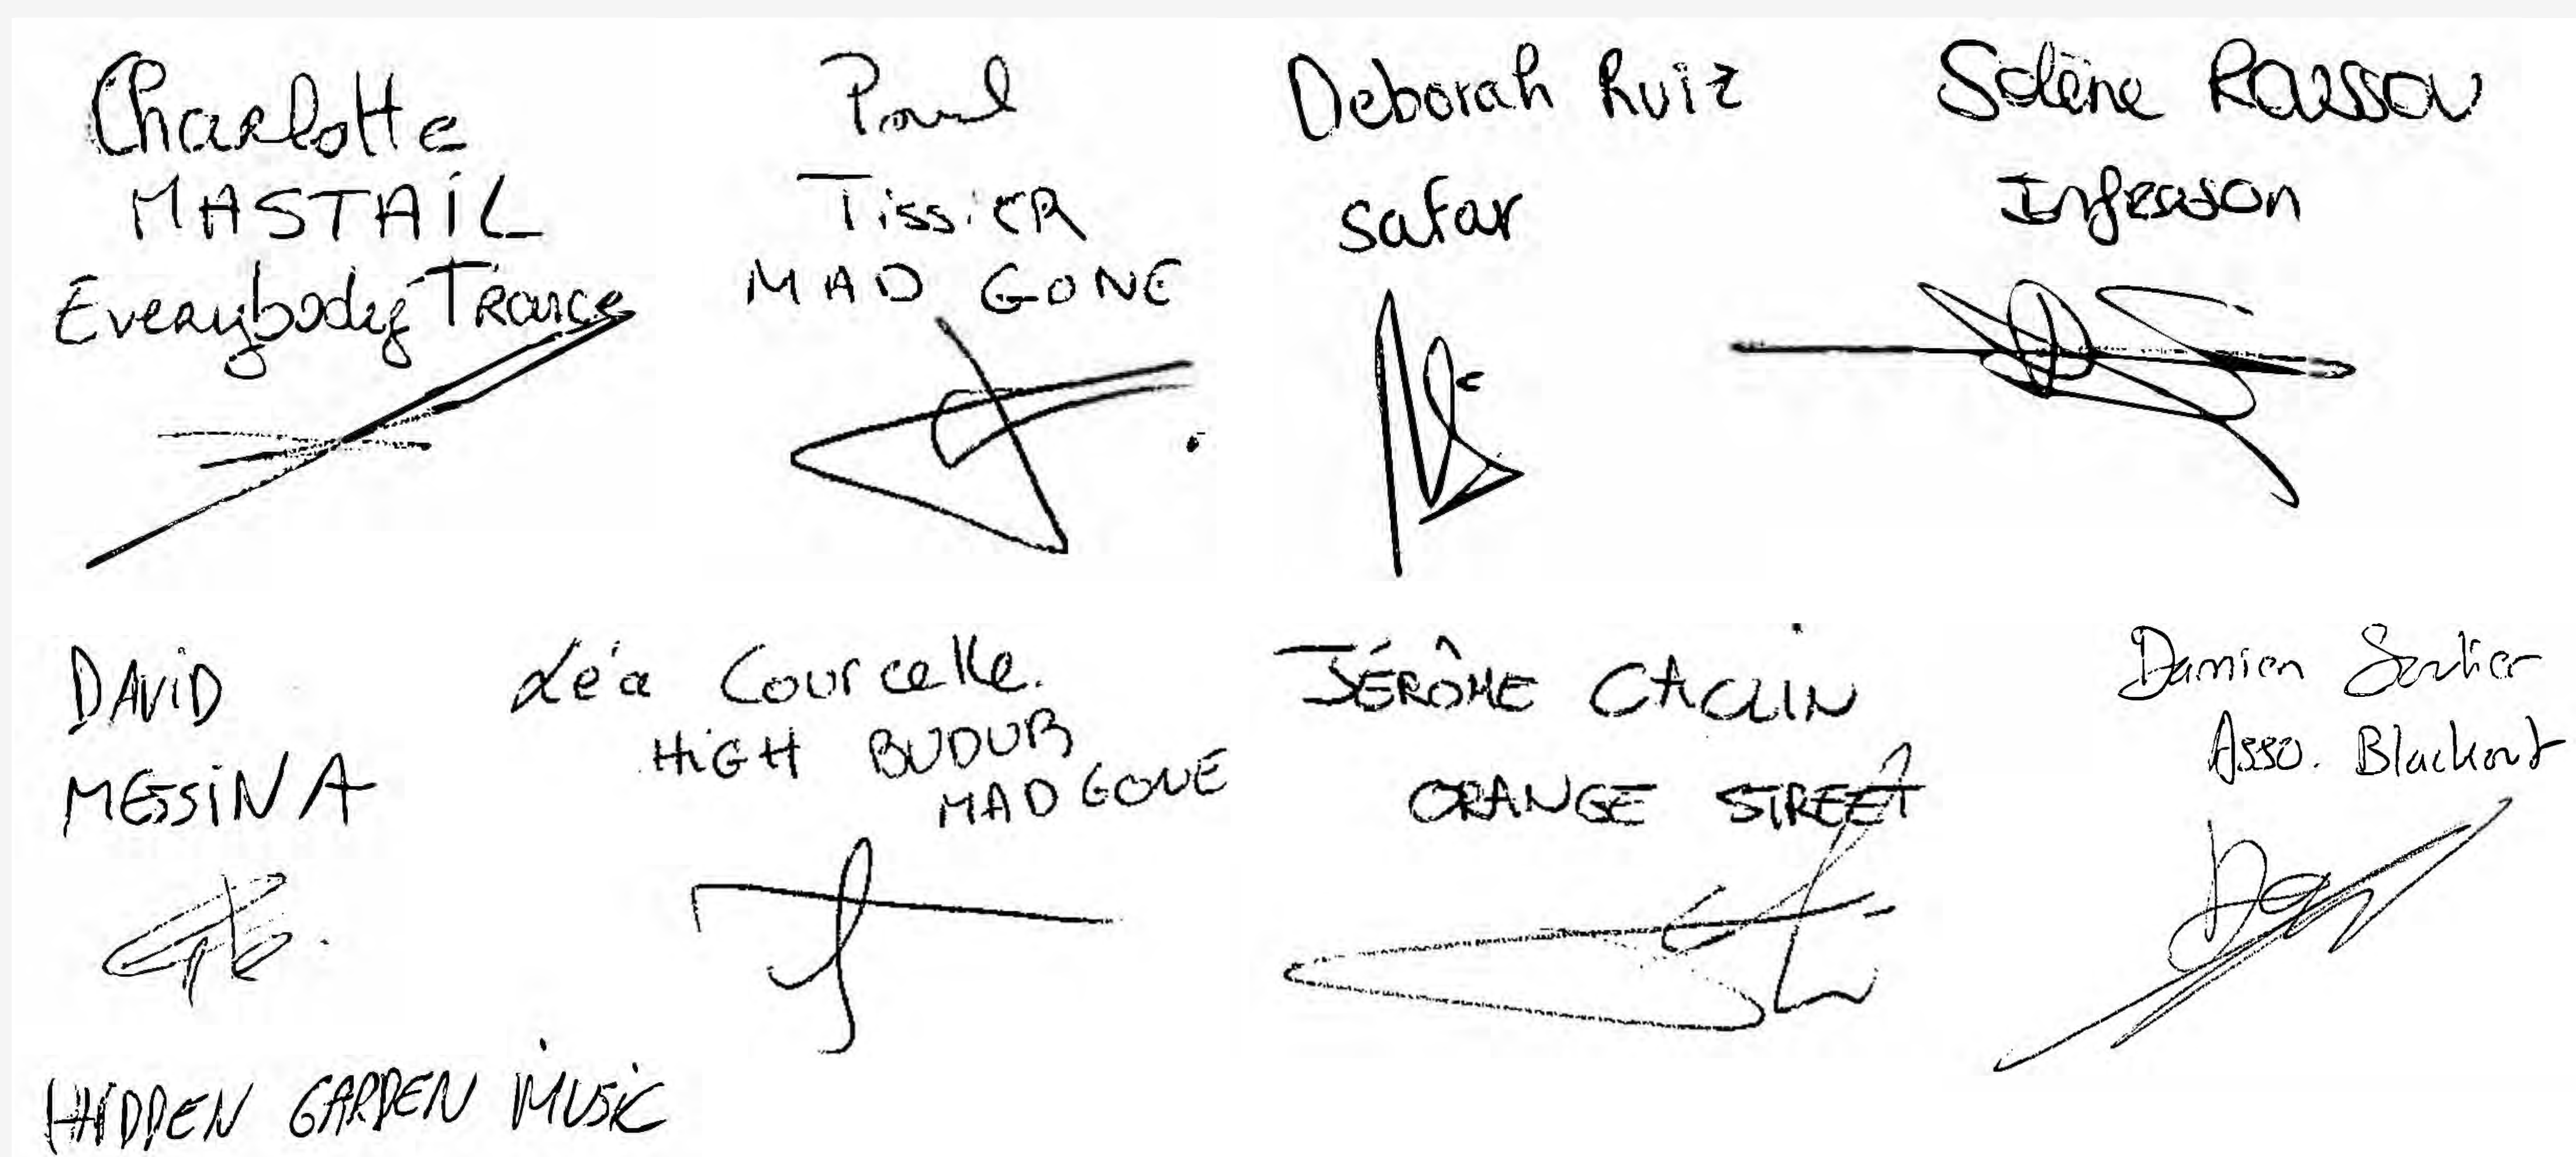 Charlotte
MASTAIL
Everybody Trance
Paul
TissiER
MAD GONE
Deborah Ruiz
Safar
Solène
Infrason
DAViD
MESSiNA
HIDDEN GARDEN MUSiC
Léa Courcelle.
HiGH BUDUB
MAD GONE
JÉRÔME CACLIN
ORANGE STREET
Damien
Asso. Blackout